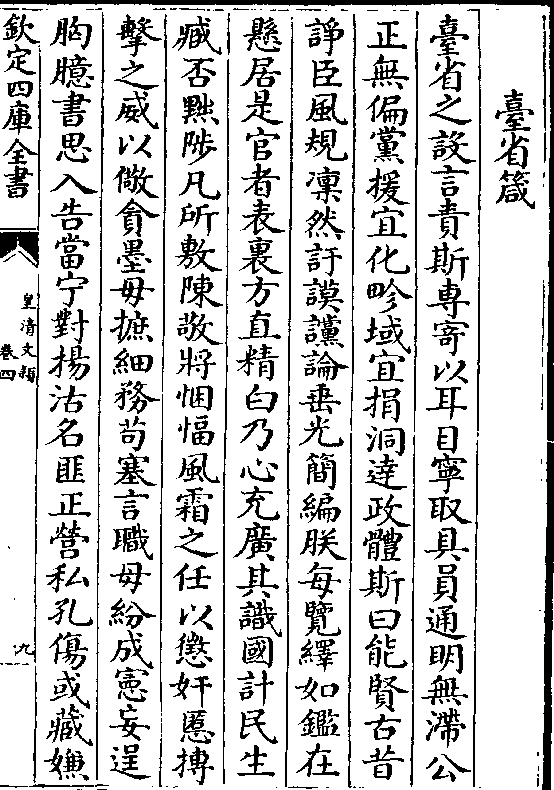 臺省箴
臺省之設言責斯專寄以耳目寧取具員通明無滯公
正無偏黨援宜化畛域宜捐洞達政體斯曰能賢古昔
諍臣風規凜然訏謨讜論垂光簡編朕每覽繹如鑑在
懸居是官者表裏方直精白乃心充廣其識國計民生
臧否黜陟凡所敷陳敬將悃愊風霜之任以懲奸慝搏
擊之威以儆貪墨毋摭細務苟塞言職毋紛成憲妄逞
胸臆書思入告當宁對揚沽名匪正營私孔傷或藏嫌
欽定四庫全書
皇清文穎
卷四
九